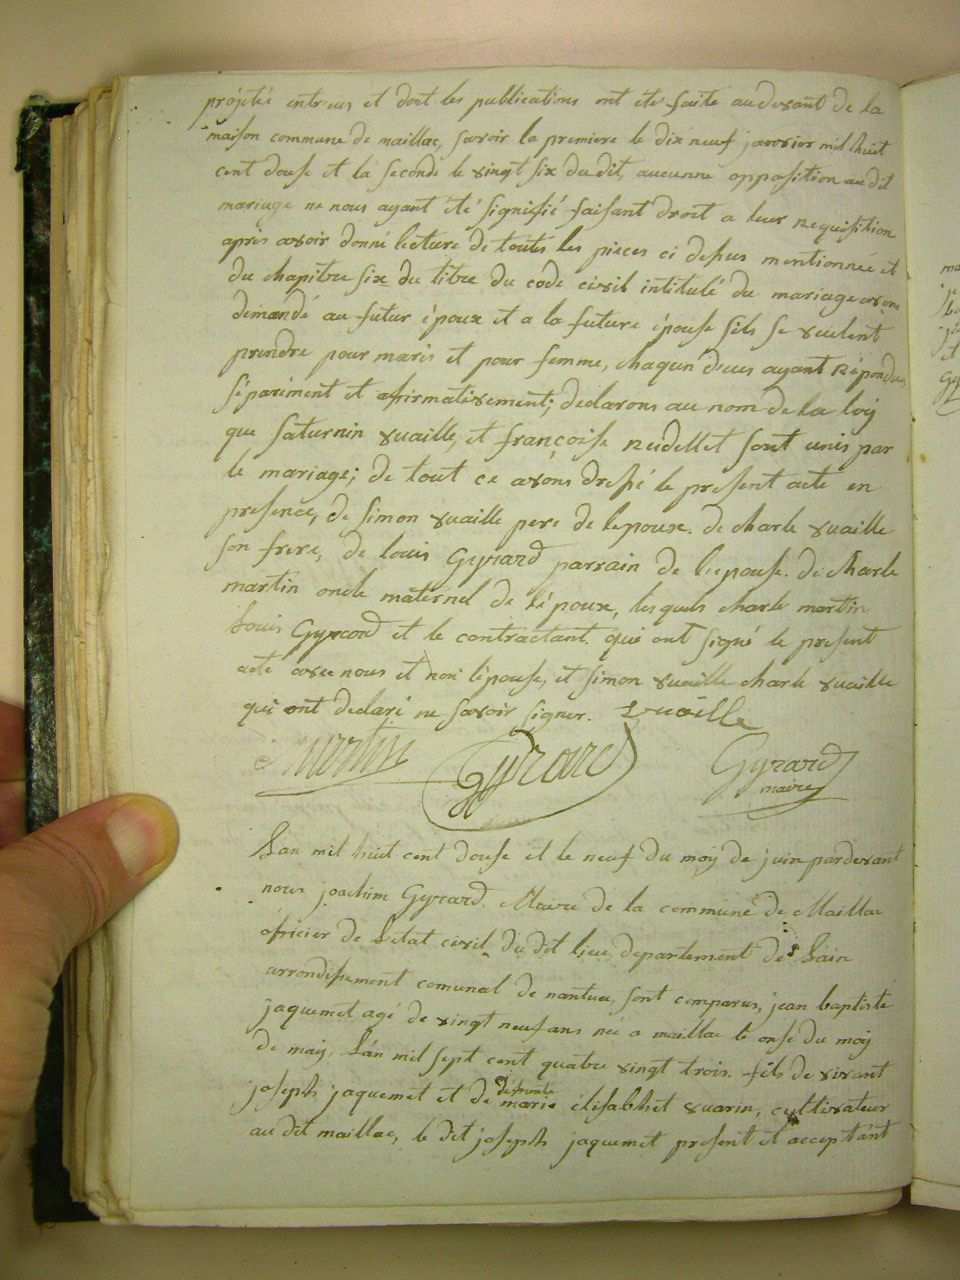 projetés entreux et dont les publications ont été faite audevant de la
maison commune de maillac, savoir la premiere le dix neuf janvier mil huit
cent douse et la seconde le vingt six du dit, aucunne opposition audit
mariage ne nous ayant été signifié faisant droit a leur requisition
après avoir donné lecture de toutes les pieces ci dessus mentionnée et
du chapitre six du titre du code civil intitulé du mariage avons
demandé au futur époux et a la future épouse sils se veulent
prendre pour maris et pour femme, chaqun deux ayant répondus
sépariment et afirmativement; declarons au nom de la loy
que saturnin vuaille, et françoise nudellet sont unis par
le mariage; de tout ce avons dressé le present acte en
presence, de simon vuaille pere de lepoux. de charle vuaille
son frere, de louis Gyrard parrain de lepouse. de charle
martin oncle maternel de lépoux, lesquels charle martin
Louis Gyrard et le contractant qui ont signé le present
acte avec nous et non lépouse, et simon vuaille charle vuaille
qui ont declaré ne savoir signer. vuaille
martin Gyrard Gyrard
maire
Lan mil huit cent douse et le neuf du moy de juin pardevant
nous joachim Gyrard. Maire de la commune de Maillac
oficier de letat civil du dit lieu, departement de Lain
arrondissement comunal de nantua, sont comparus, jean baptiste
jaquemet agé de vingt neuf ans né a maillac le onse du moy
de may, Lan mil sept cent quatre vingt trois. fils de vivant
joseph jaquemet et de défunte marie élisabhet vuarin, cultivateur
au dit maillac, le dit joseph jaquemet present et acceptant